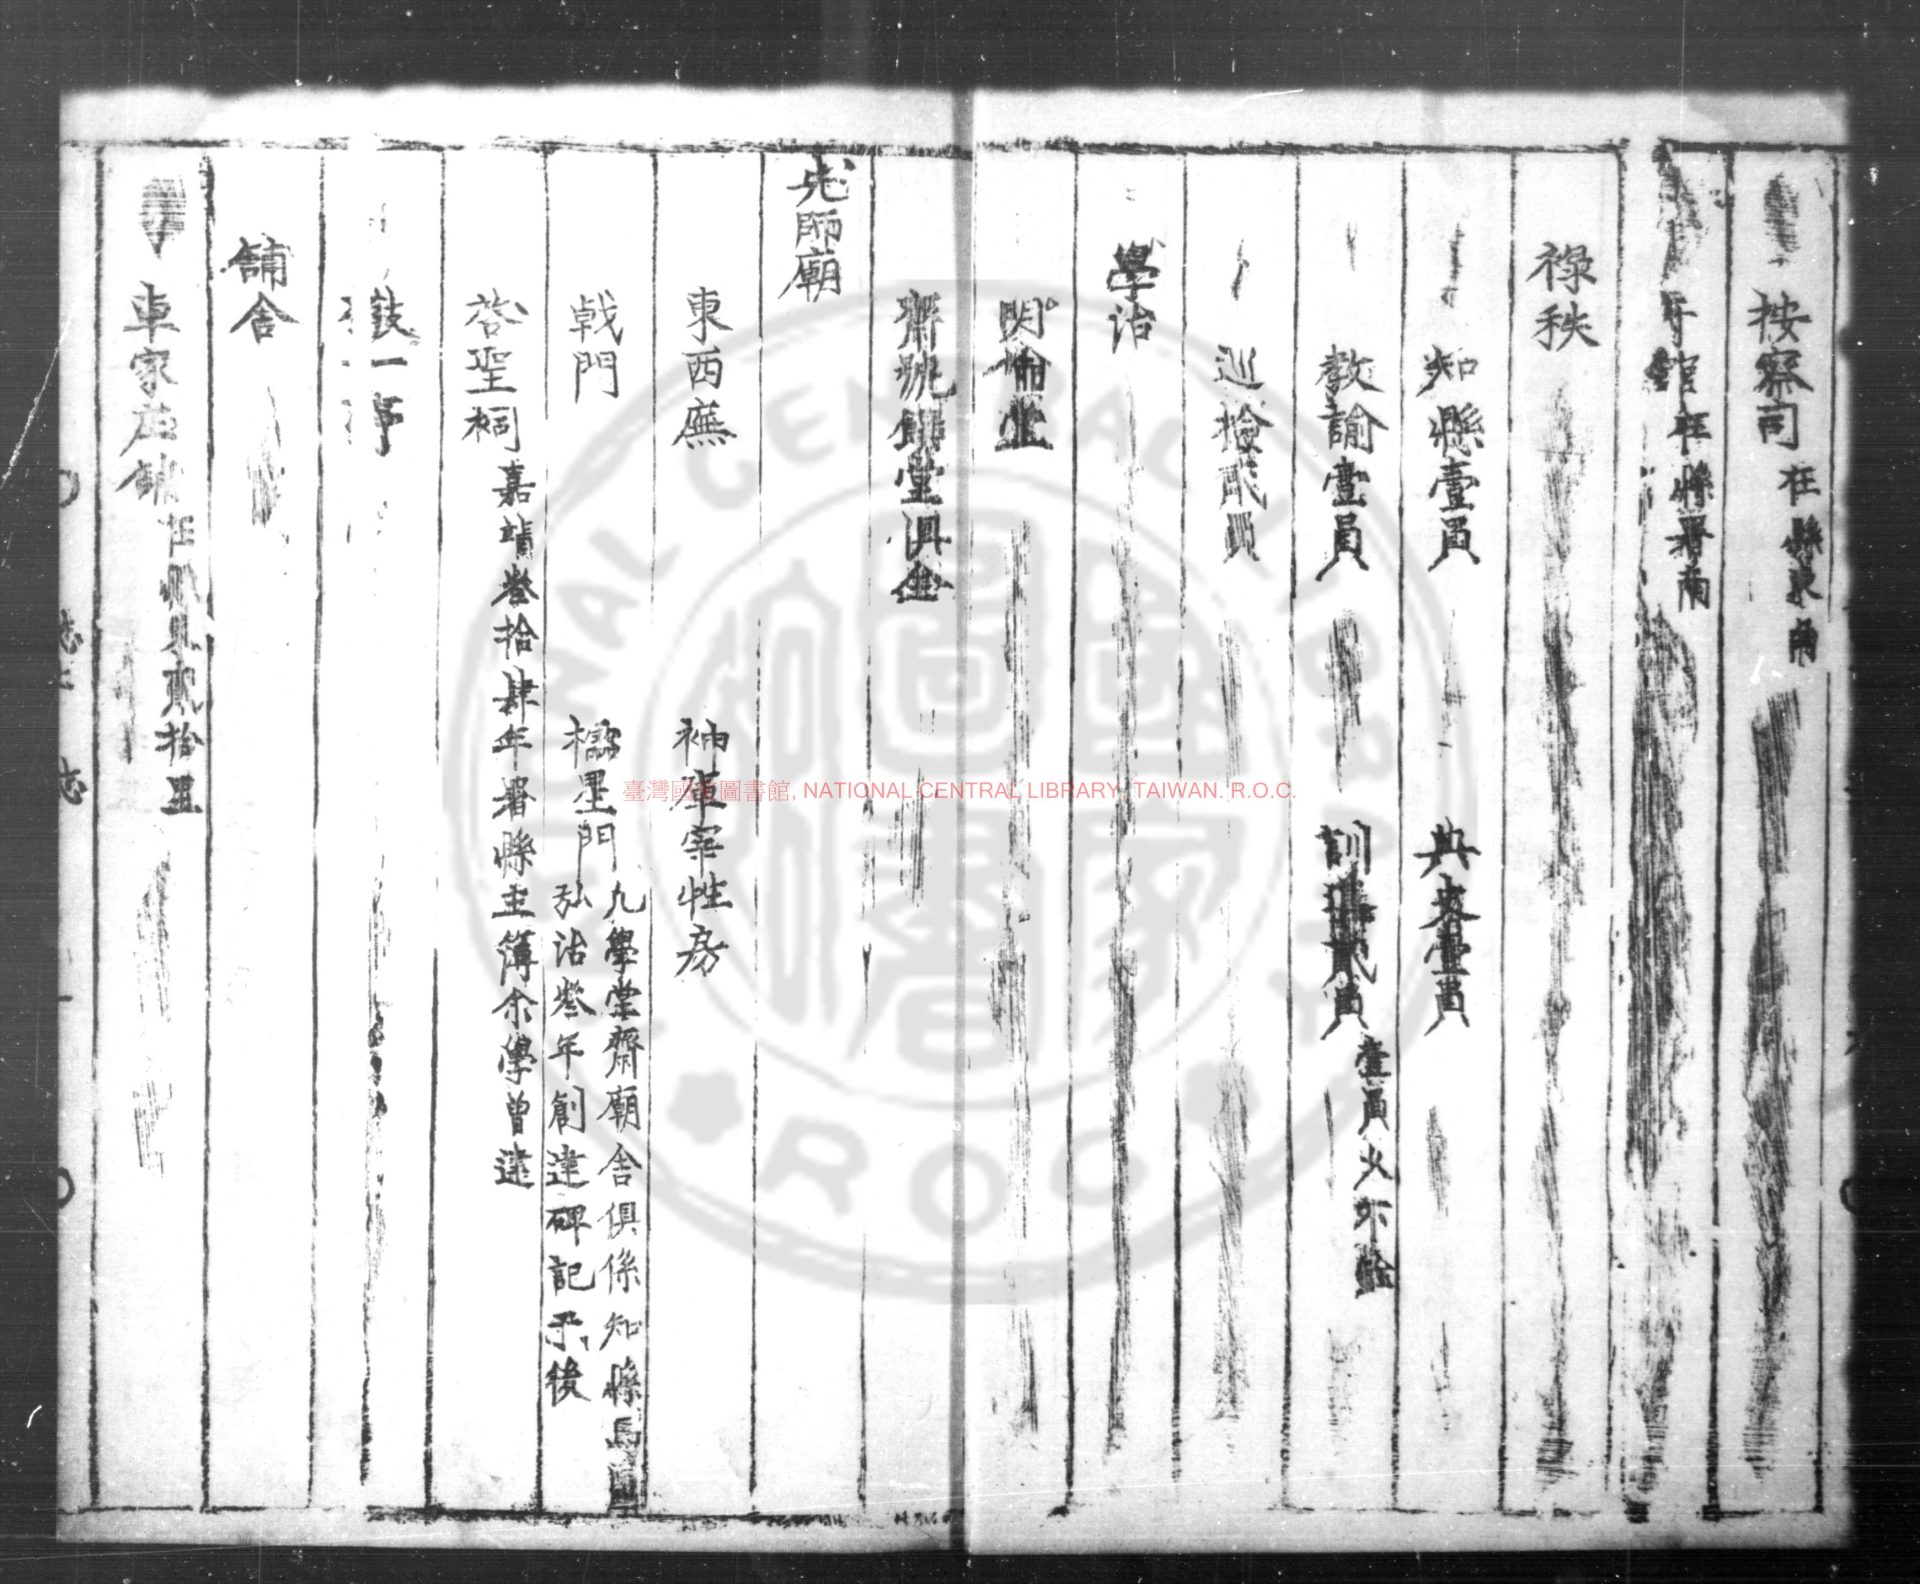 按察司在縣東南
館在縣署南
祿秩
知縣壹員 典吏壹員
教諭壹員 訓導貳員壹員火不餘
巡檢貳員
學治
明倫堂
齋號饌堂俱全
先師廟
東西廡 神庫宰牲房
戟門 櫺星門九學堂齋廟舍俱係知縣馬
弘治叄年創建碑記于後
啓聖祠嘉靖叄拾肆年署縣主簿余學曾建
敍一亭
舖舍
車家庄舖在縣東貳拾里
臺灣國家圖書館, NATIONAL CENTRAL LIBRARY, TAIWAN. R.O.C.